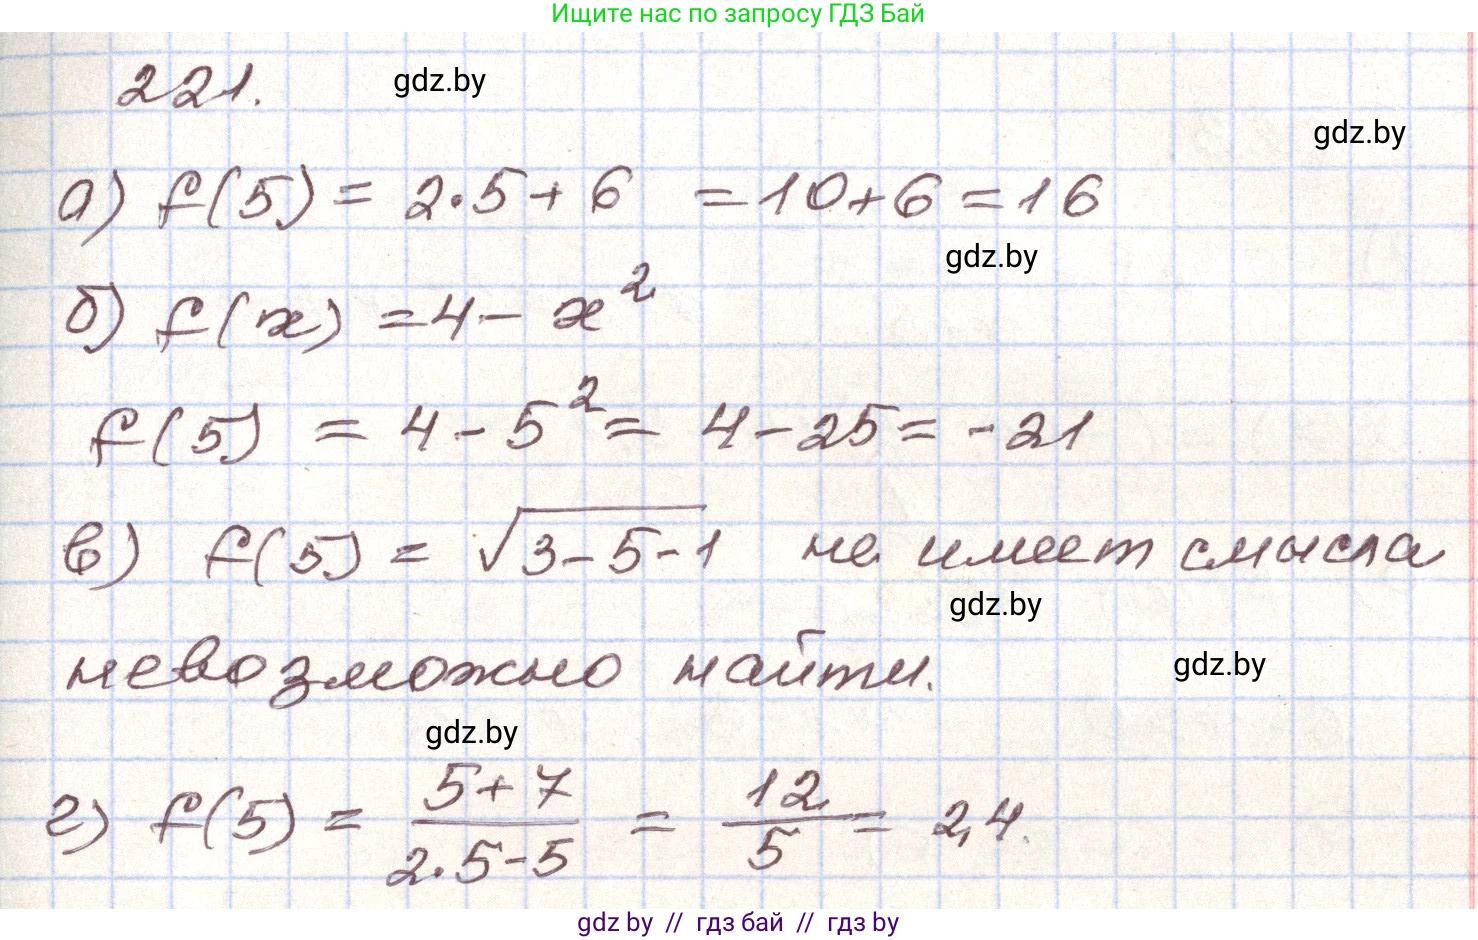 Ищите нас по запросу ГДЗ Бай
221.
gdz.by
gdz.by
а) f(5) = 2·5 + 6 = 10 + 6 = 16
gdz.by
б) f(x) = 4 - x²
f(5) = 4 - 5² = 4 - 25 = -21
в) f(5) = √3-5-1 не имеет смысла
gdz.by
невозможно найти.
gdz.by
gdz.by
г) f(5) = (5+7)/(2·5-5) = 12/5 = 2,4.
gdz.by // гдз бай // гдз by